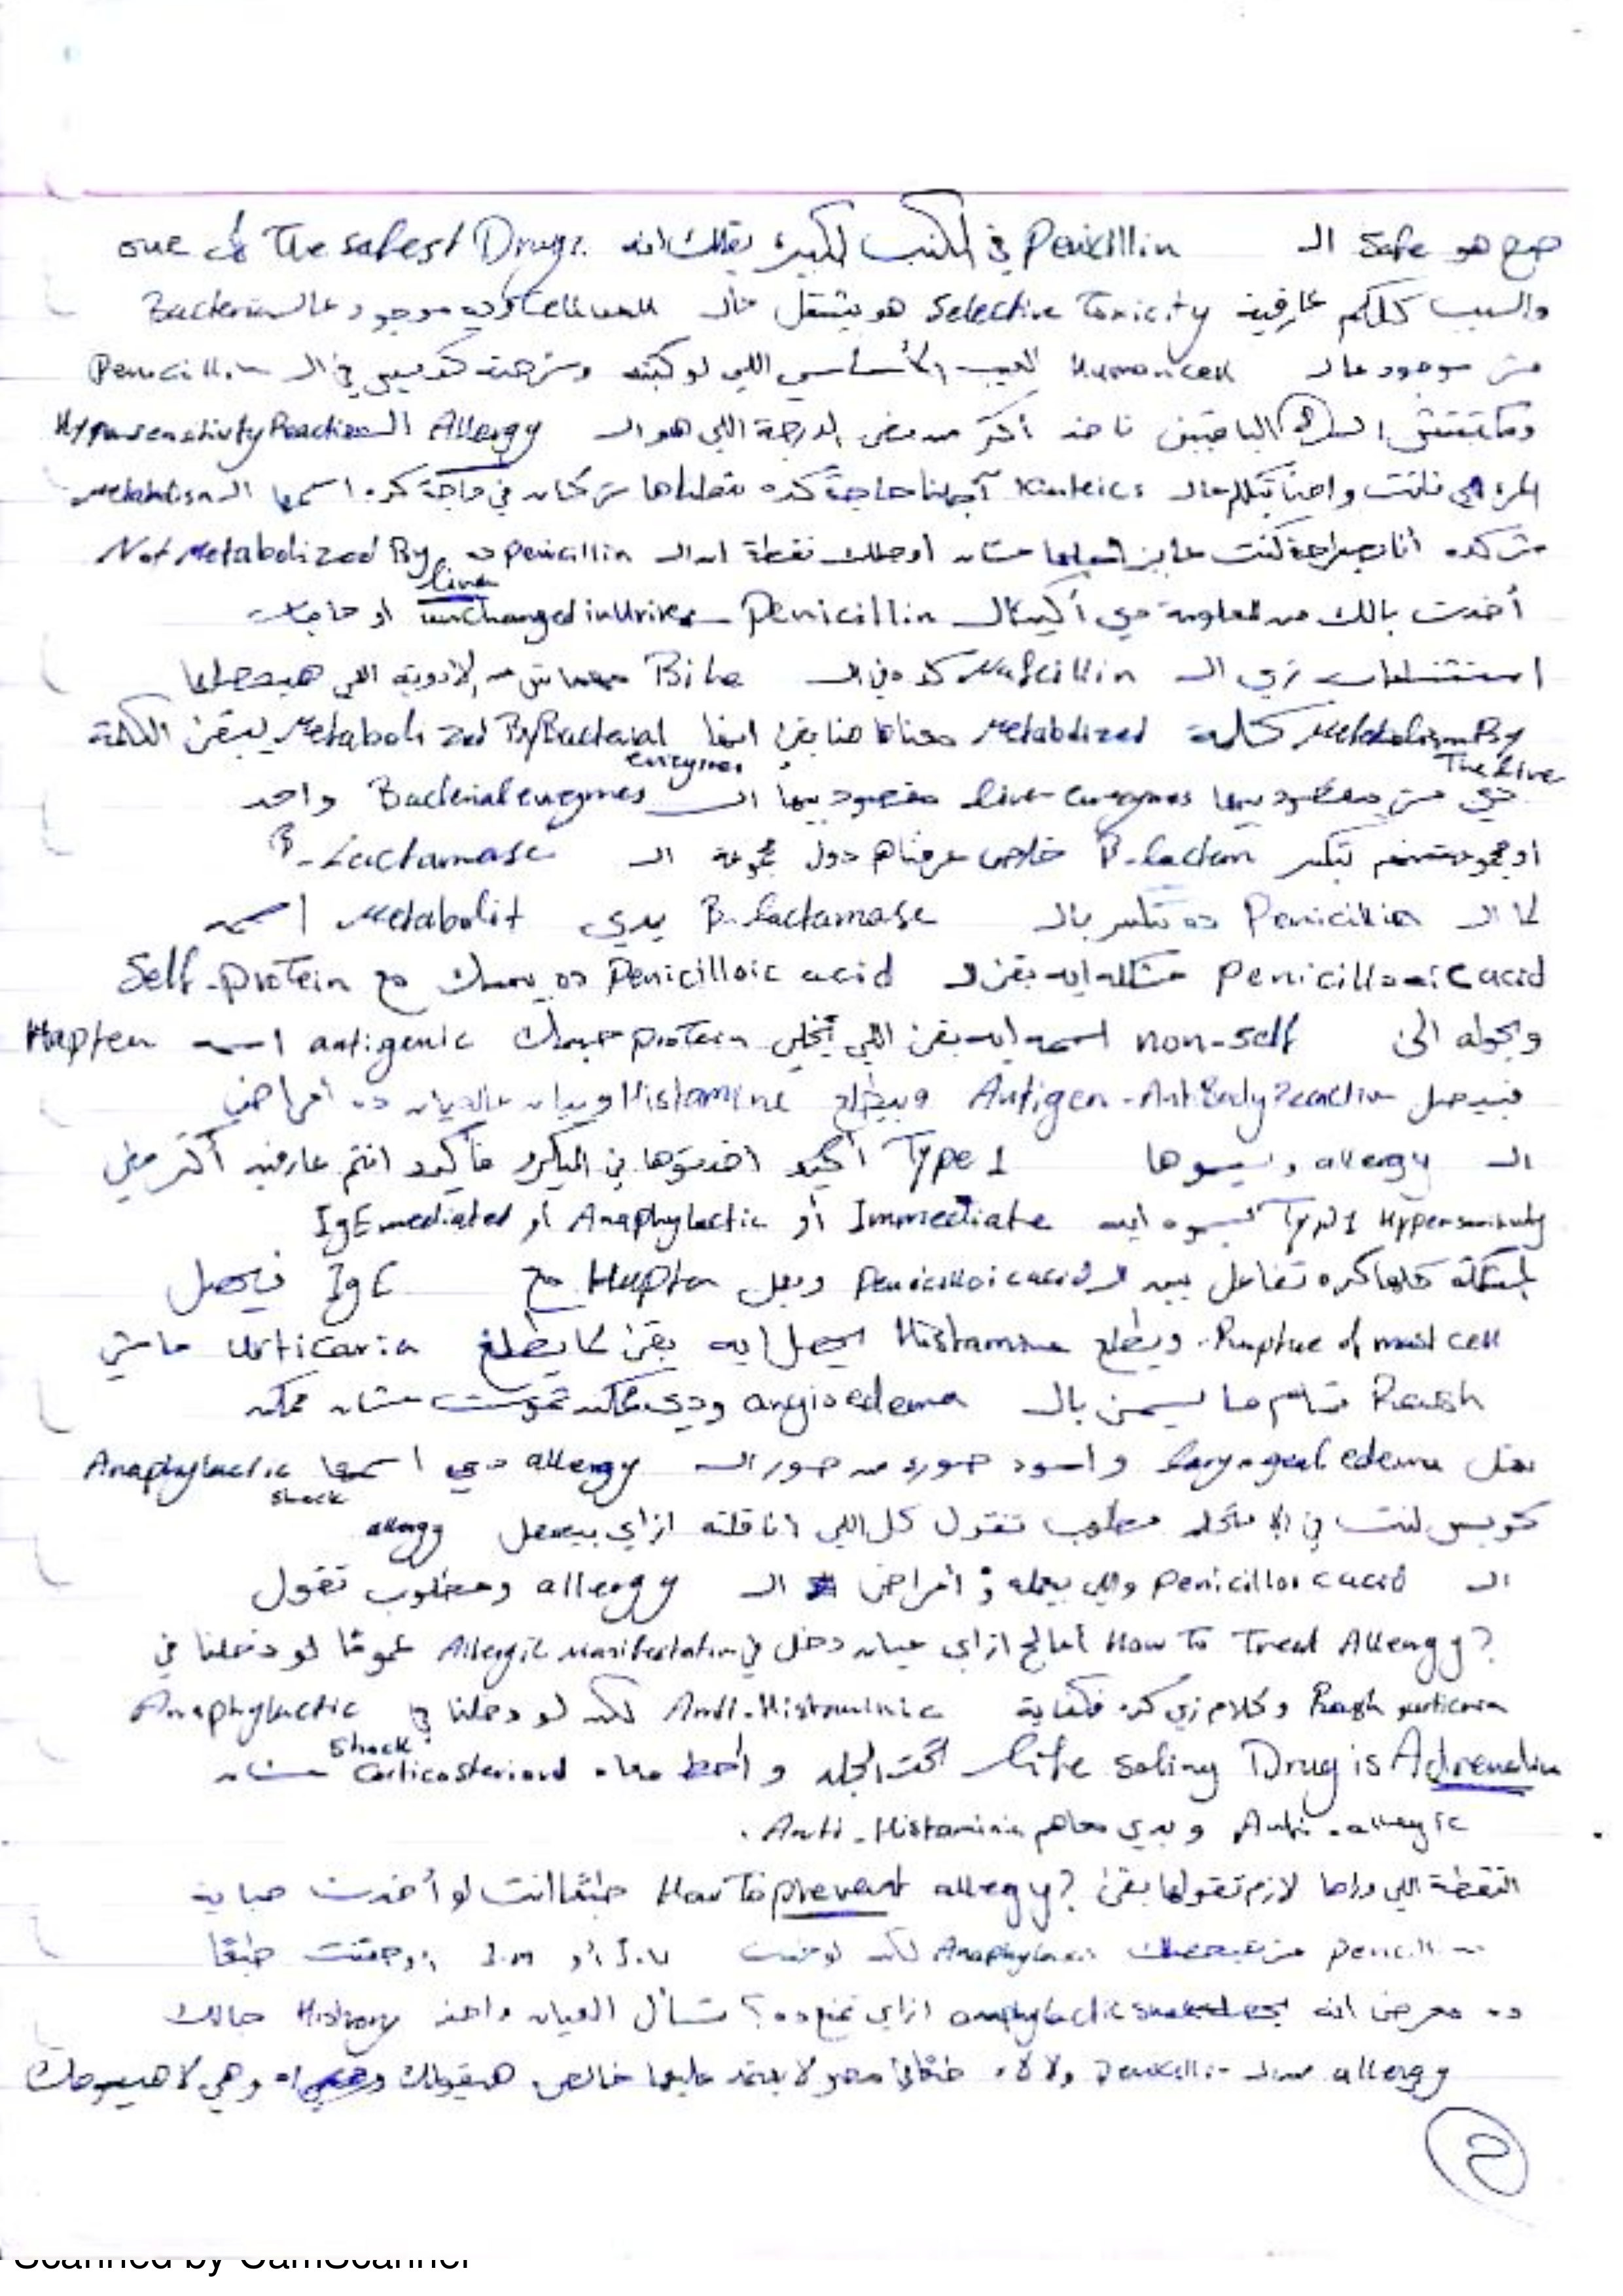 صح هو Safe الـ Penicillin في الكتب الكبيرة يقلك انه one of The safest Drugs.
والسبب كلكم عارفينه Selective Toxicity هو بيشتغل عالـ Cell wall وده موجود عالـ Bacteria
مش موجود عالـ Human cell العيب الأساسي اللي لو كتبته وشرحته كويس في الـ Penicillin
الباقيين تاخد أكتر من نص الدرجة اللي هو الـ Allergy الـ Hypersensitivity Reaction
المرة اللي فاتت واحنا بنتكلم عالـ Kinetics أجلنا حاجة كده اسمها الـ Metabolism
مش كده أنا بصراحة كنت عايز عشان اوصلك نقطة ان الـ penicillin ده Not Metabolized By
liver
أخدت بالك من المعلومة دي Penicillin unchanged in Urine او حاجات
استثناءات زي الـ Nafcillin كده في الـ Bile مفيش من الأدوية اللي هيحصلها
Metabolism By كلمة Metabolized معناها هنا بقى انها Metabolized By Bacterial يبقى الكلمة
The liver enzymes
دي مش مقصود بيها liver enzymes مقصود بيها الـ Bacterial enzymes واحد
بتكسر B-lactam خلاص عرفناهم دول مجموعة الـ B-Lactamase
لما الـ Penicillin ده يتكسر بالـ B-lactamase يدي Metabolit اسمه
penicilloic acid مشكلته ايه بقى الـ Penicilloic acid ده يمسك مع Self-protein
ويحوله الى non-self اسمه ايه بقى اللي يخلي protein antigenic اسمه Hapten
فيحصل Antigen-AntiBody Reaction ويطلع Histamine ويبان عالعيان ده أعراض
الـ allergy ويسموها Type 1 أكيد اخدتوها في الميكرو فأكيد انتم عارفينه أكتر مني
Type 1 Hypersensitivity بيسموه ايه Immediate أو Anaphylactic أو IgE mediated
المشكلة كلها كده تفاعل بين الـ Penicilloic acid ويعمل Hapten مع IgE فيحصل
Rupture of mast cell ويطلع Histamine يحصل ايه بقى لما يطلع urticaria ماشي
Rash تمام ما يسمى بالـ angioedema ودي ممكن تموت عشان ممكن
تعمل laryngeal edema واسود صورة من صور الـ allergy دي اسمها Anaphylactic
shock
كويس انت في الامتحان مطلوب تقول كل اللي انا قلته ازاي بيعمل allergy
الـ Penicilloic acid واللي بيعمله أعراض الـ allergy ومطلوب تقول
How To Treat Allergy? أعالج ازاي عيان دخل في Allergic manifestation عموما لو دخلنا في
Rash urticaria وكلام زي كده فكفاية Anti-Histaminic لكن لو دخلنا في Anaphylactic
Shock
life saving Drug is Adrenalin تحت الجلد وأحط معاه Corticosteriord عشان
Anti-allergic ويدي معاهم Anti-Histaminic.
النقطة اللي وراها لازم تقولها بقى How To prevent allergy? طبعا انت لو أخدت حباية
Penicillin مش Anaphylaxis لكن لو خدت I.V أو I.M طبعا
ده معرض انه anaphylactic shock ازاي نمنع ده؟ تسأل العيان واخد History
allergy من الـ Penicillin ولا لاء طبعا مش عليها خالص هيقولك
2
Scanned by CamScanner